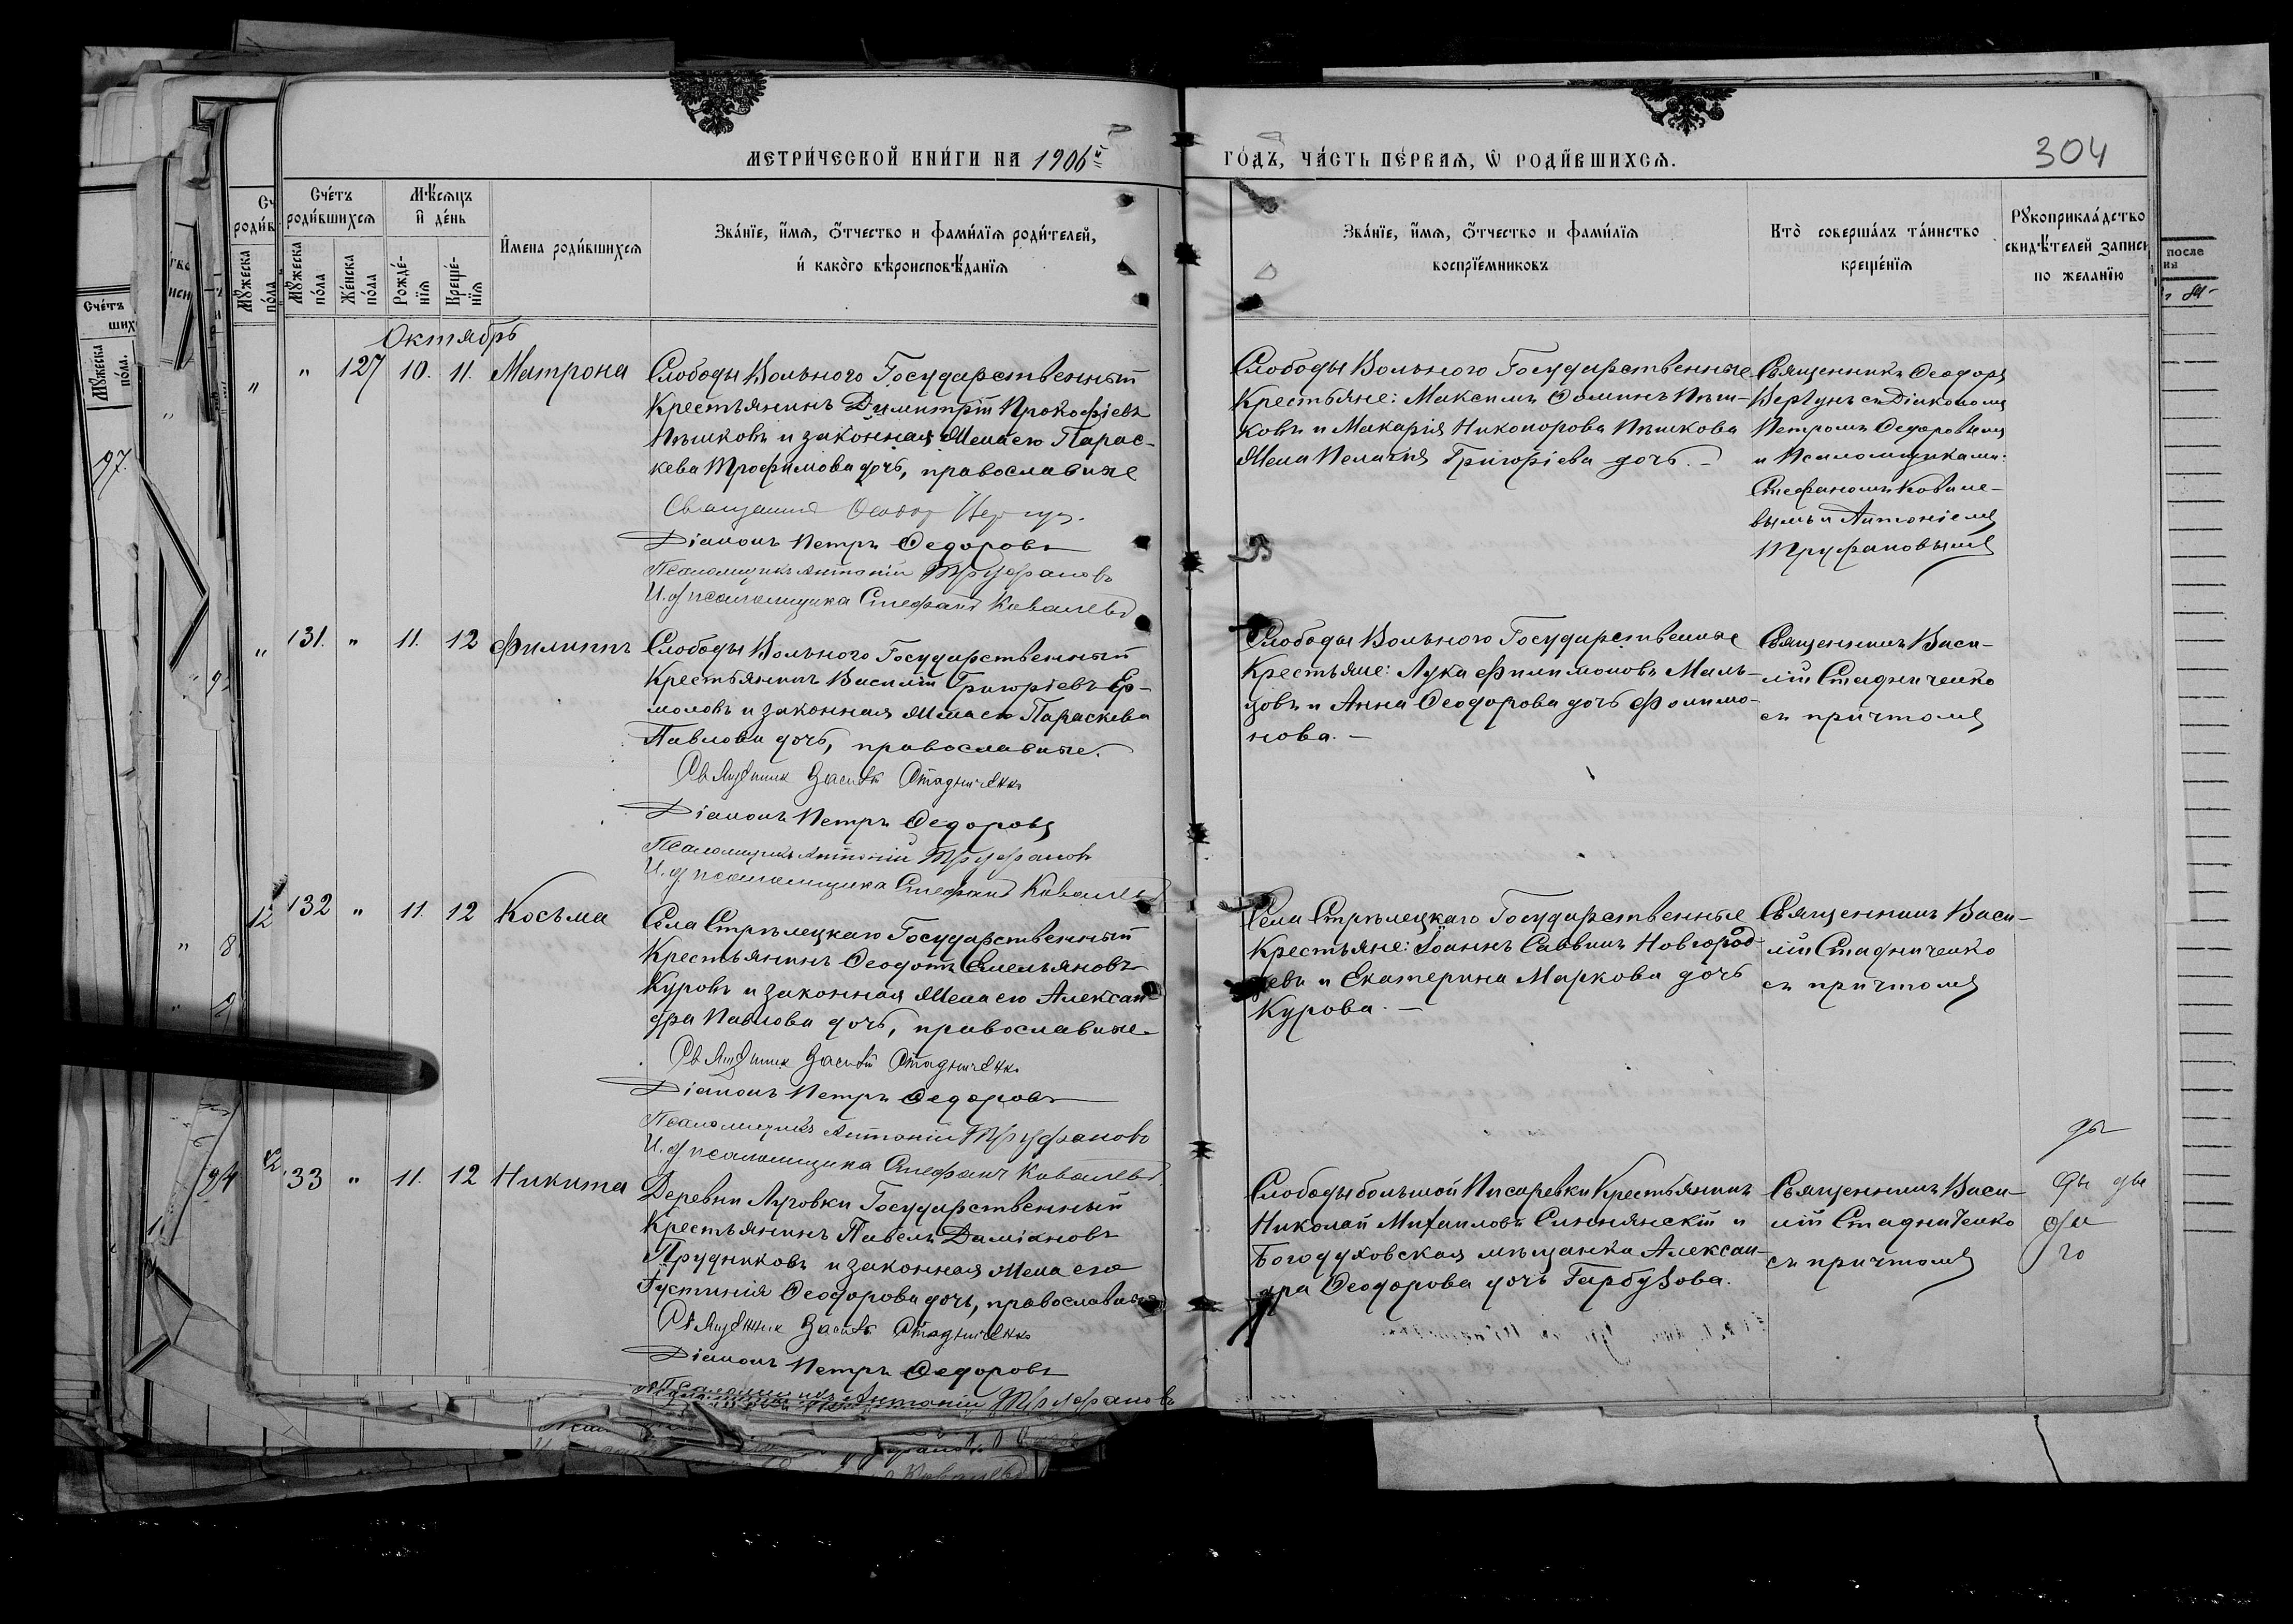 МЕТРИ́ЧЕСКОЙ КНИ́ГИ НА 1906й
ГО́ДЪ, ЧА́СТЬ ПЕ́РВАЯ, Ѡ РОДИ́ВШИХСЯ.
304
Счетъ родившихся
Мужеска пола
Женска пола
Мѣсяцъ и день
Рожденія
Крещенія
Имена родившихся
Званіе, имя, отчество и фамилія родителей,
и какого вѣроисповѣданія
Званіе, имя, отчество и фамилія
воспріемниковъ
Кто совершалъ таинство
крещенія
Рукоприкладство
свидѣтелей записи
по желанію
Октябрь
" 127 10. 11. Матрона
Слободы Вольнаго Государственный
Крестьянинъ Димитрій Прокофіевъ
Пѣшковъ и законная Жена его Парас-
кева Трофимова дочь, православные
Священникъ Феодор Вергун.
Діаконъ Петръ Федоровъ
Псаломщикъ Антоній Труфановъ
И. д. псаломщика Стефанъ Ковалевъ
Слободы Вольнаго Государственные
Крестьяне: Максимъ Фоминъ Пѣш-
ковъ и Макарія Никонорова Пѣшкова
Жена Пелагія Григоріева дочь. –
Священникъ Феодоръ
Вергунъ съ Діакономъ
Петромъ Федоровымъ
и Псаломщиками:
Стефаномъ Ковале-
вымъ и Антоніемъ
Труфановымъ
131. " 11. 12 Филиппъ
Слободы Вольнаго Государственный
Крестьянинъ Василій Григоріевъ Ер-
моловъ и законная Жена его Параскева
Павлова дочь, православные.
Священник Василій Стадниченко
Діаконъ Петръ Федоровъ
Псаломщикъ Антоній Труфановъ
И. д. псаломщика Стефанъ Ковалевъ
Слободы Вольнаго Государственные
Крестьяне: Лука Филимоновъ Маль-
цовъ и Анна Феодорова дочь Филимо-
нова. –
Священникъ Васи-
лій Стадниченко
съ причтомъ
132 " 11. 12 Косьма
Села Стрѣлецкаго Государственный
Крестьянинъ Феодотъ Емельяновъ
Куровъ и законная Жена его Алексан-
дра Павлова дочь, православные.
Священник Василій Стадниченко
Діаконъ Петръ Федоровъ
Псаломщикъ Антоній Труфановъ
И. д. псаломщика Стефанъ Ковалевъ
Села Стрѣлецкаго Государственные
Крестьяне: Іоаннъ Саввинъ Новгород-
цевъ и Екатерина Маркова дочь
Курова. –
Священникъ Васи-
лій Стадниченко
съ причтомъ
33 " 11. 12 Никита
Деревни Луговки Государственный
Крестьянинъ Павелъ Даміановъ
Прудниковъ и законная Жена его
Іустинія Феодорова дочь, православные
Священник Василій Стадниченко
Діаконъ Петръ Федоровъ
Псаломщикъ Антоній Труфановъ
Слободы большой Писаревки Крестьянинъ
Николай Михаиловъ Синянскій и
Богодуховская мѣщанка Алексан-
дра Феодорова дочь Гарбузова.
Священникъ Васи-
лій Стадниченко
съ причтомъ